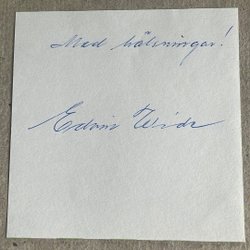 Med hälsningar!
Edvin Wide